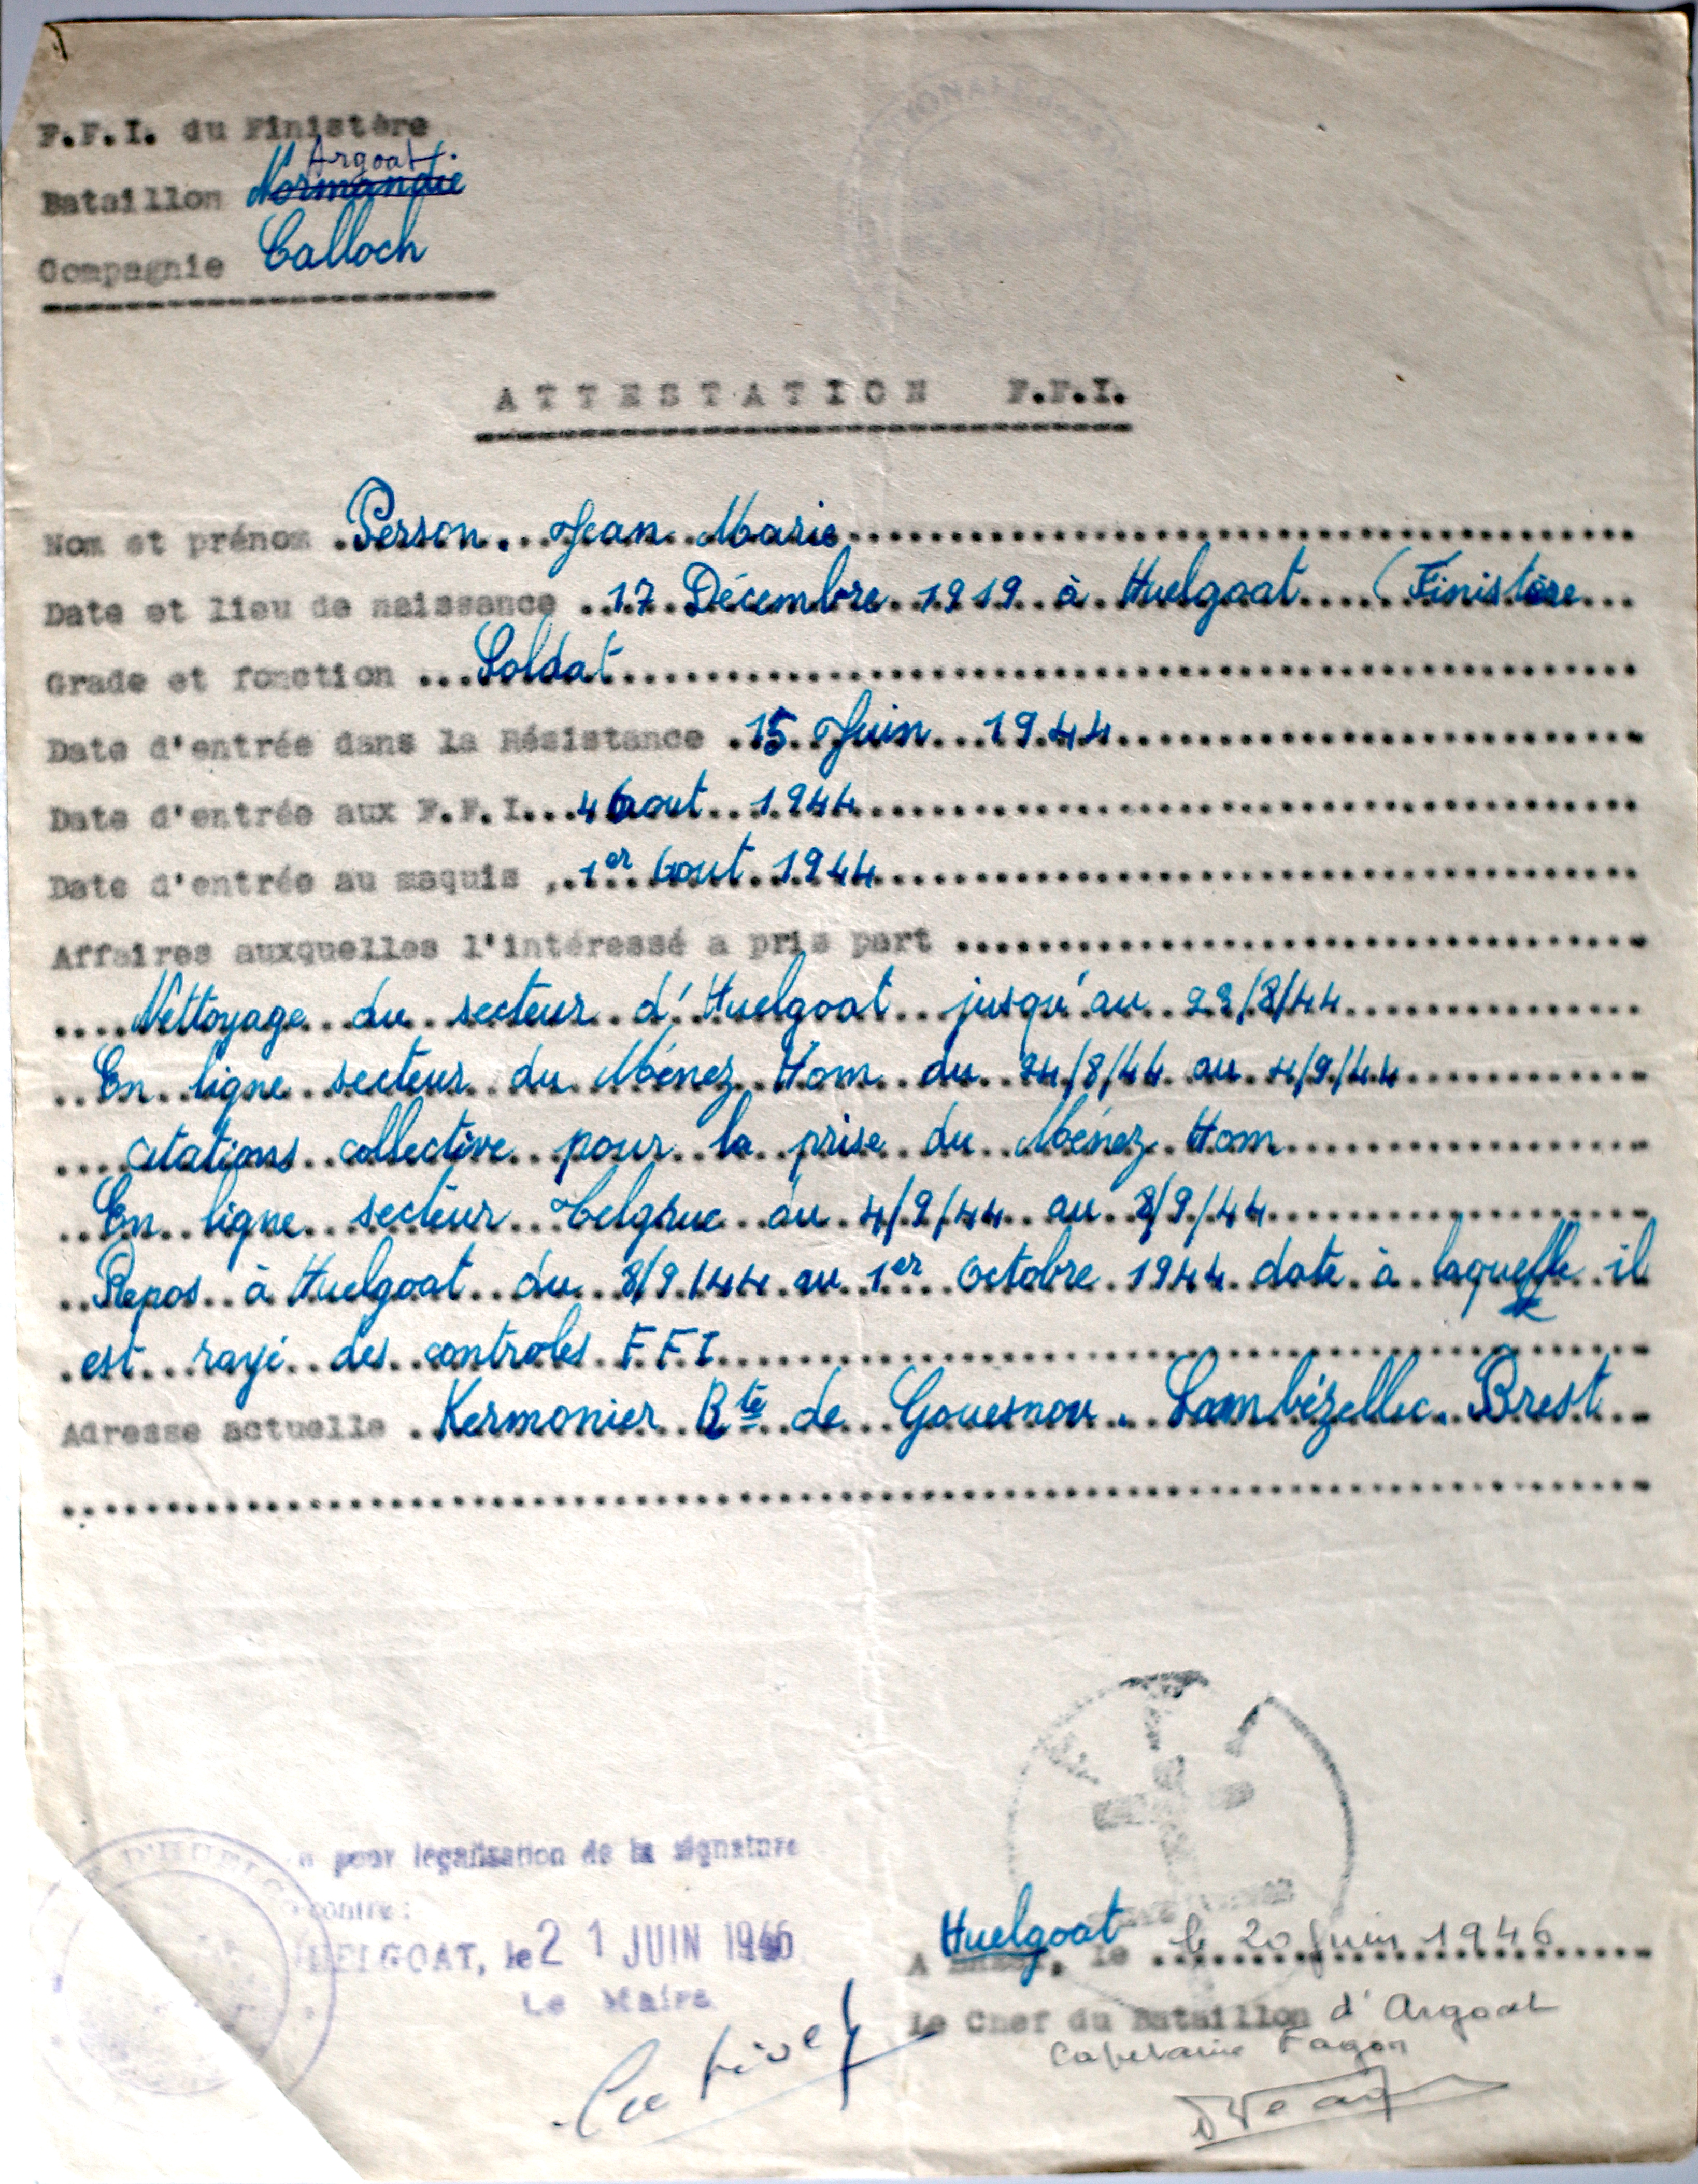 F.F.I. du Finistère
Argoat.
Bataillon Normandie
Compagnie Calloch
ATTESTATION F.F.I.
Nom et prénom Person. Jean Marie
Date et lieu de naissance 17 Décembre 1919 à Huelgoat (Finistère
Grade et fonction Soldat
Date d'entrée dans la Résistance 15 Juin 1944
Date d'entrée aux F.F.I. 4 Aout 1944
Date d'entrée au maquis 1er Aout 1944
Affaires auxquelles l'intéressé a pris part
Nettoyage du secteur d'Huelgoat jusqu'au 23/8/44
En ligne secteur du Ménez Hom du 24/8/44 au 4/9/44
citations collective pour la prise du Ménez Hom
En ligne secteur Telgruc du 4/9/44 au 8/9/44
Repos à Huelgoat du 8/9/44 au 1er Octobre 1944 date à laquelle il
est rayé des controles F F I
Adresse actuelle Kermonier Rte de Gouesnou. Lambézellec. Brest
pour légalisation de la signature
contre :
HUELGOAT, le 21 JUIN 1946
Le Maire
A Huelgoat, le le 20 Juin 1946
Le Chef du Bataillon d'Argoat
Capitaine Fagon